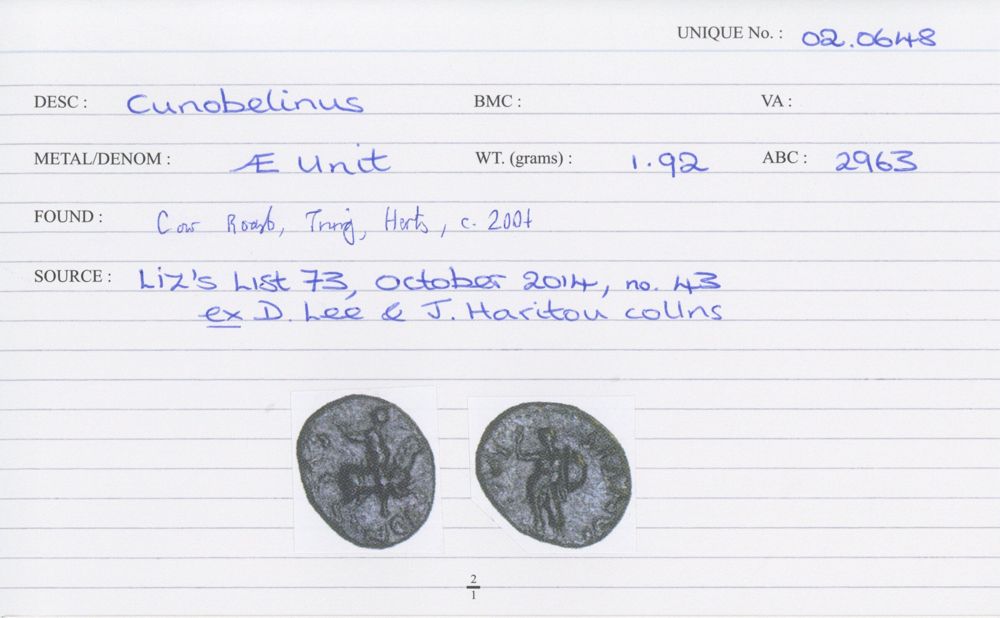 UNIQUE No. : 02.0648
DESC : Cunobelinus BMC : VA :
METAL/DENOM : Æ Unit WT. (grams) : 1.92 ABC : 2963
FOUND : Cow Roast, Tring, Herts, c. 2001
SOURCE : Liz's List 73, October 2014, no. 43
ex D. Lee & J. Haritou collns
2
1